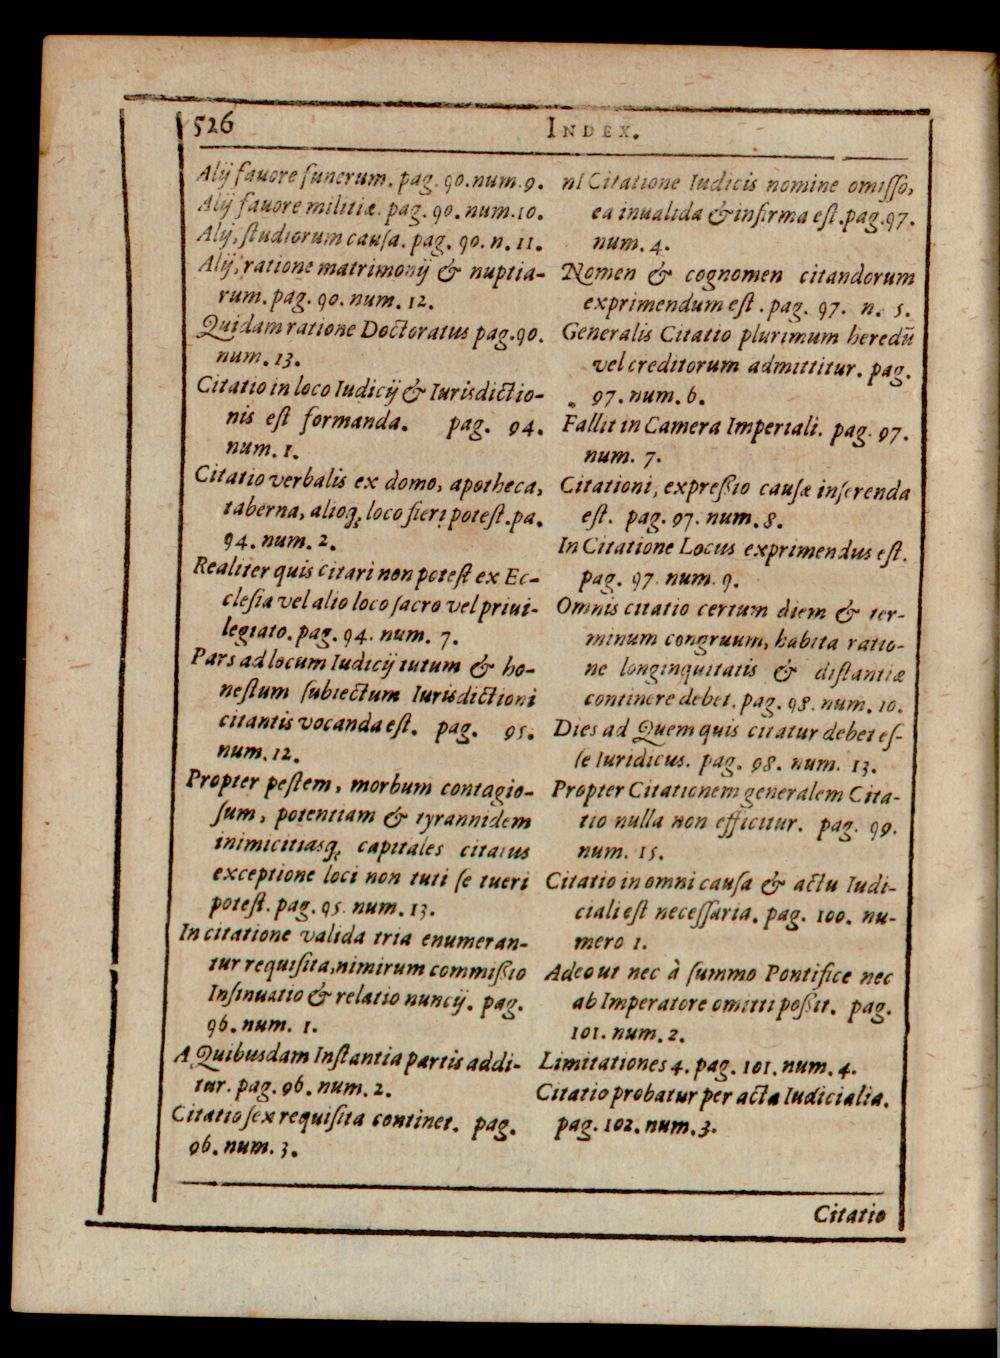 526 INDEX.
Alij fauore funerum. pag. 90. num. 9.
Alij fauore militiæ. pag. 90. num. 10.
Alij, studiorum causa. pag. 90. n. 11.
Alij, ratione matrimonij & nuptia-
rum. pag. 90. num. 12.
Quidam ratione Doctoratus pag. 90.
num. 13.
Citatio in loco Iudicij & Iurisdictio-
nis est formanda. pag. 94.
num. 1.
Citatio verbalis ex domo, apotheca,
taberna, alioq; loco fieri potest. pa.
94. num. 2.
Realiter quis citari non potest ex Ec-
clesia vel alio loco sacro vel priui-
legiato. pag. 94. num. 7.
Pars ad locum Iudicij tutum & ho-
nestum subiectum Iurisdictioni
citantis vocanda est. pag. 95.
num. 12.
Propter pestem, morbum contagio-
sum, potentiam & tyrannidem
inimicitiasq; capitales citatus
exceptione loci non tuti se tueri
potest. pag. 95. num. 13.
In citatione valida tria enumeran-
tur requisita, nimirum commißio
Insinuatio & relatio nuncij. pag.
96. num. 1.
A Quibusdam Instantia partis addi-
tur. pag. 96. num. 2.
Citatio sex requisita continet. pag.
96. num. 3.
nI Citatione Iudicis nomine omisso,
ea inualida & infirma est. pag. 97.
num. 4.
Nomen & cognomen citandorum
exprimendum est. pag. 97. n. 5.
Generalis Citatio plurimum heredū
vel creditorum admittitur. pag.
97. num. 6.
Fallit in Camera Imperiali. pag. 97.
num. 7.
Citationi, expreßio causæ inserenda
est. pag. 97. num. 8.
In Citatione Locus exprimendus est.
pag. 97. num. 9.
Omnis citatio certum diem & ter-
minum congruum, habita ratio-
ne longinquitatis & distantiæ
continere debet. pag. 98. num. 10.
Dies ad Quem quis citatur debet es-
se Iuridicus. pag. 98. num. 13.
Propter Citationem generalem Cita-
tio nulla non efficitur. pag. 99.
num. 15.
Citatio in omni causa & actu Iudi-
ciali est necessaria. pag. 100. nu-
mero 1.
Adeo ut nec à summo Pontifice nec
ab Imperatore omitti poßit. pag.
101. num. 2.
Limitationes 4. pag. 101. num. 4.
Citatio probatur per acta Iudicialia.
pag. 102. num. 3.
Citatio